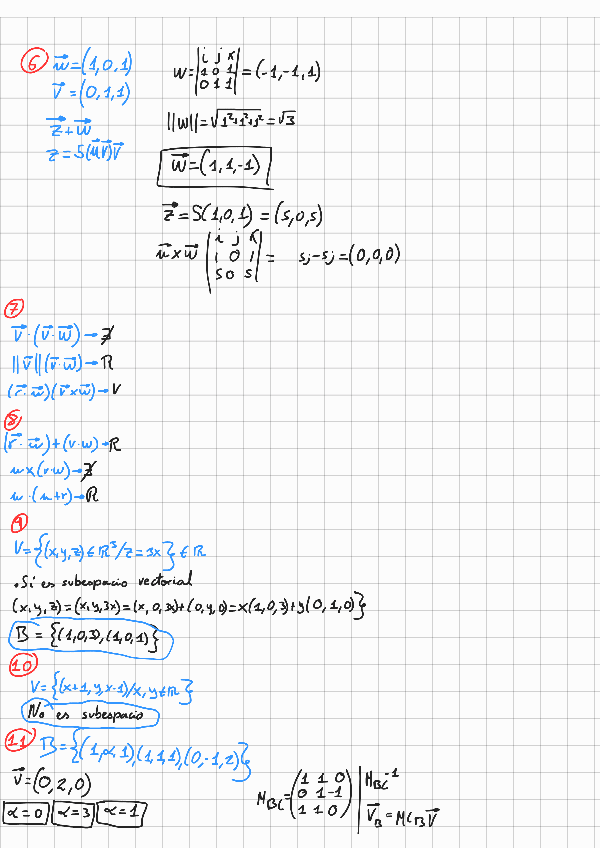 6 w⃗=(1,0,1)
v⃗=(0,1,1)
z⃗+w⃗
z=5(u⃗v⃗)v⃗
w=|i j k; 1 0 1; 0 1 1|=(-1,-1,1)
||w||=√1²+1²+1²=√3
w⃗=(1,1,-1)
z⃗=5(1,0,1)=(5,0,5)
u⃗×w⃗ |i j k; 1 0 1; 5 0 5|= 5j-5j=(0,0,0)
7
v⃗·(v⃗·w⃗)→∄
||v⃗||(v⃗·w⃗)→ℝ
(r⃗·w⃗)(v⃗×w⃗)→V
8
(r⃗·w⃗)+(v·w)→ℝ
u×(v·w)→∄
u·(u+r)→ℝ
9
V={(x,y,z)∈ℝ³/z=3x}∈ℝ
•Sí es subespacio vectorial
(x,y,z)=(x,y,3x)=(x,0,3x)+(0,y,0)=x(1,0,3)+y(0,1,0)}
B={(1,0,3),(1,0,1)}
10
V={(x+1,y,x-1)/x,y∈ℝ}
No es subespacio
11 B={(1,α,1),(1,1,1),(0,-1,2)}
v⃗=(0,2,0)
α=0 α=3 α=1
M_BC=(1 1 0; 0 1 -1; 1 1 0) | M_BC⁻¹
V⃗_B=MC_B V⃗